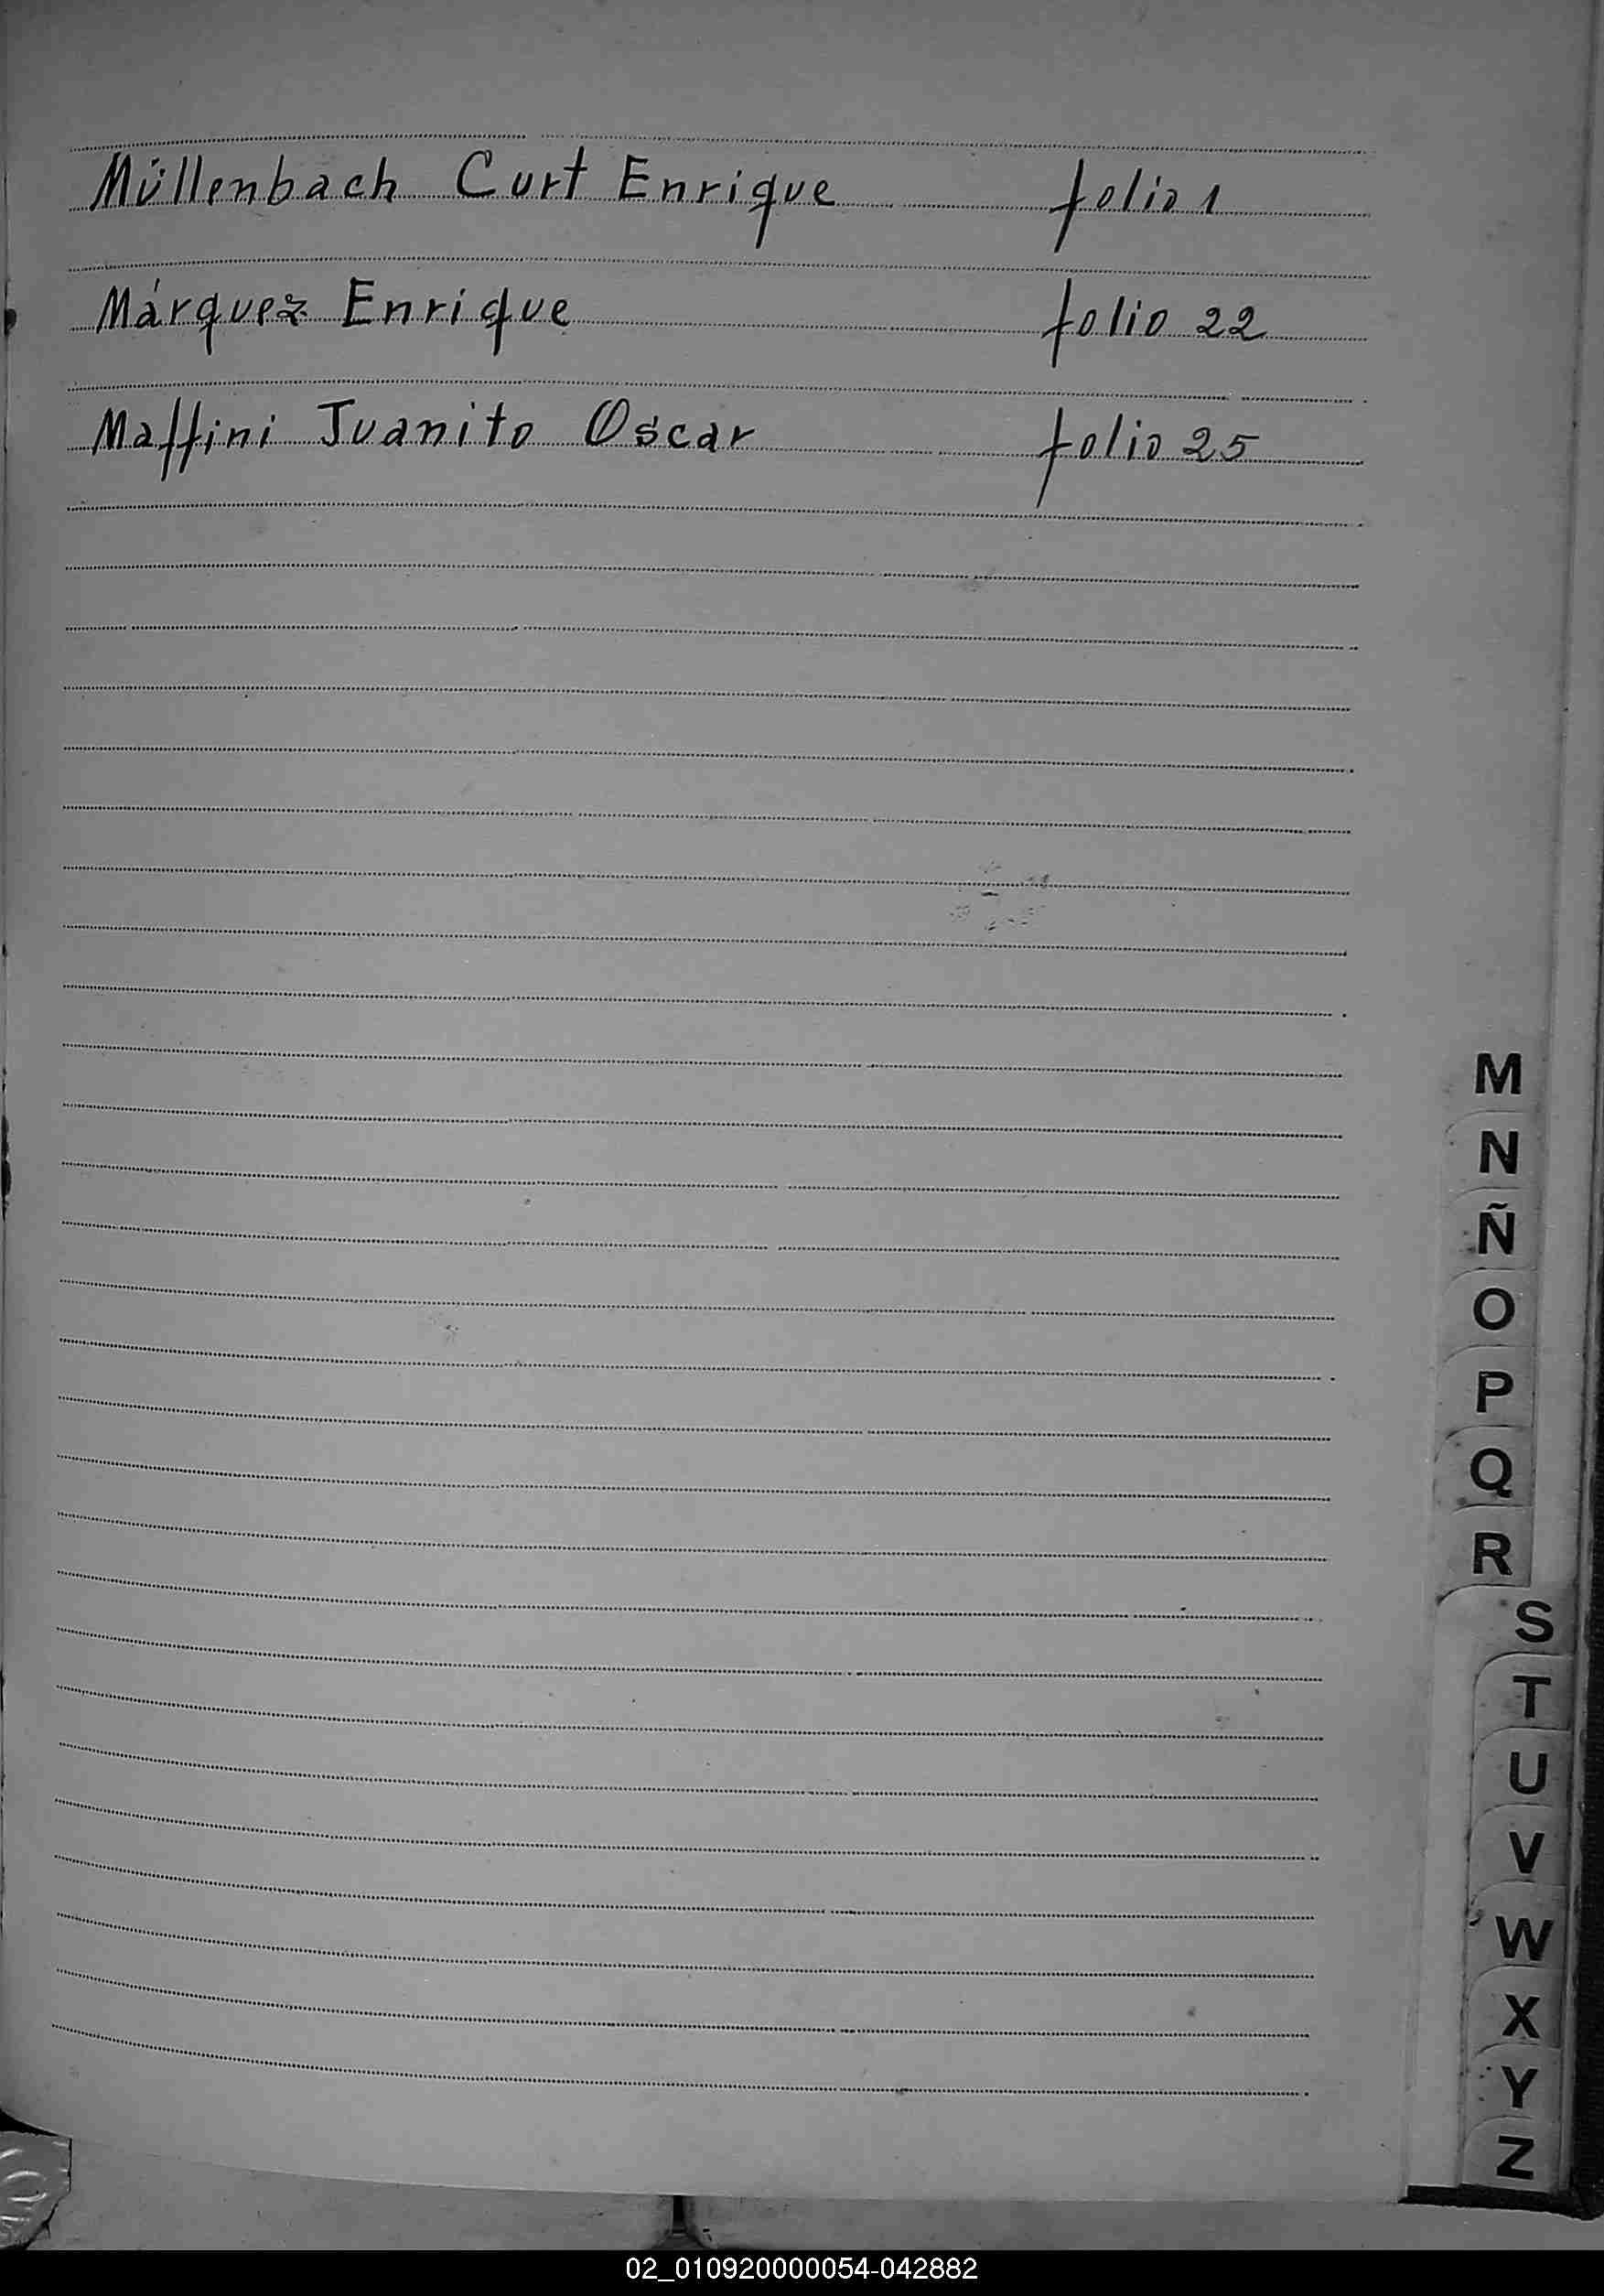 Müllenbach Curt Enrique folio 1
Márquez Enrique folio 22
Maffini Juanito Oscar folio 25
M
N
Ñ
O
P
Q
R
S
T
U
V
W
X
Y
Z
02_010920000054-042882